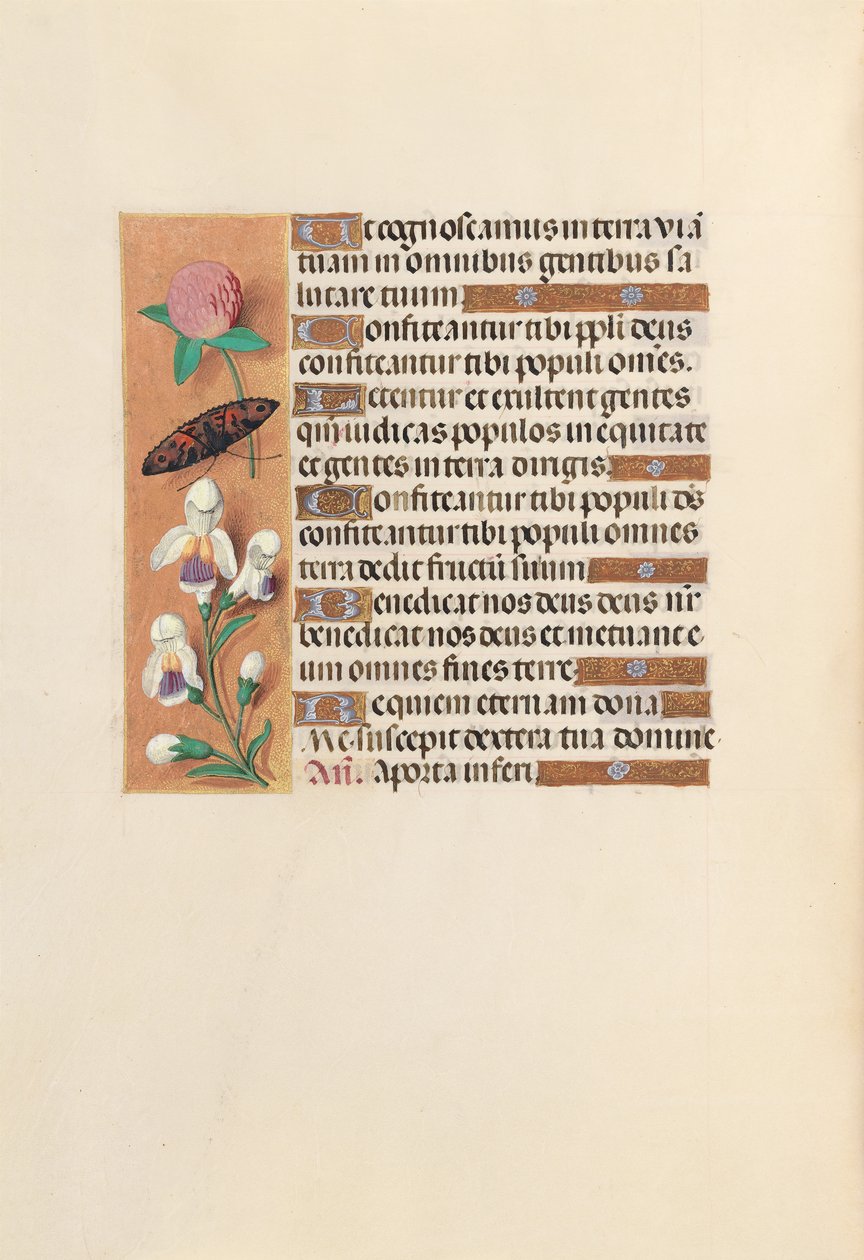 Ut cognoscamus in terra viā
tuam in omnibus gentibus sa
lutare tuum.
Confiteantur tibi ppli deus
confiteantur tibi populi om̄es.
Letentur et exultent gentes
qm̄ iudicas populos in equitate
et gentes in terra dirigis.
Confiteantur tibi populi ds̄
confiteantur tibi populi omnes
terra dedit fructū suum
Benedicat nos deus deus nr̄
benedicat nos deus et metuant e
um omnes fines terre.
Requiem eternam dona
Me suscepit dextera tua domine.
Añ. Aporta inferi.